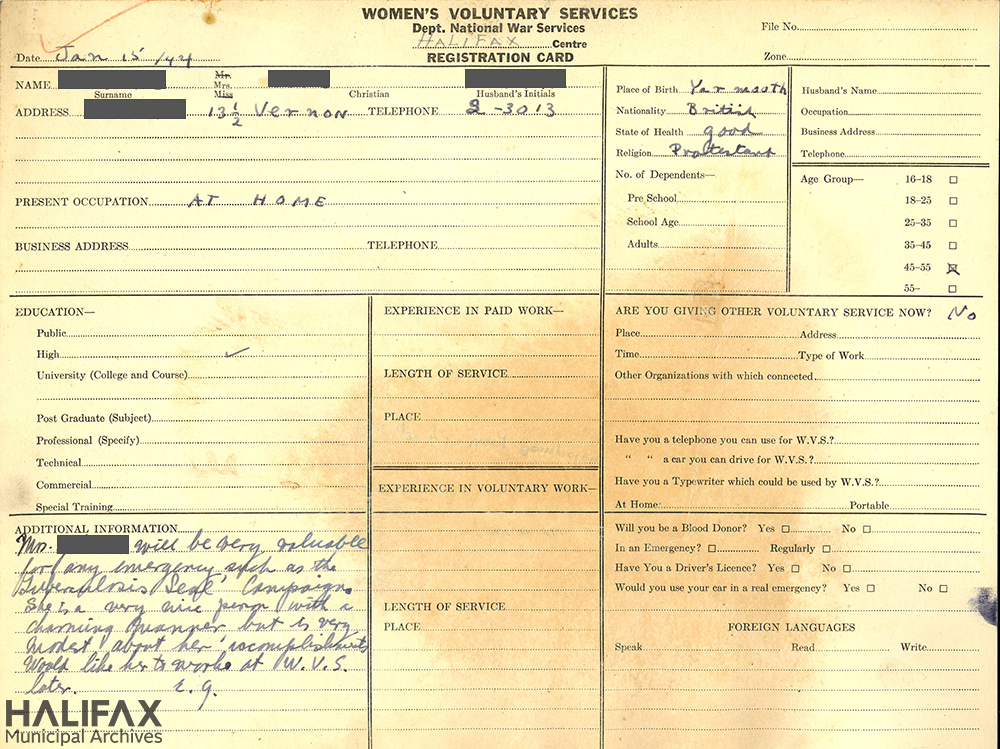 WOMEN'S VOLUNTARY SERVICES
Dept. National War Services
HALIFAX Centre
REGISTRATION CARD
File No.
Date Jan 15/44
Zone
NAME
Mr.
Mrs.
Miss
Surname
Christian
Husband's Initials
ADDRESS 13 1/2 Vernon TELEPHONE 2-3013
PRESENT OCCUPATION AT HOME
BUSINESS ADDRESS TELEPHONE
Place of Birth Yarmouth
Nationality British
State of Health good
Religion Protestant
No. of Dependents—
Pre School
School Age
Adults
Husband's Name
Occupation
Business Address
Telephone
Age Group— 16-18 ☐
18-25 ☐
25-35 ☐
35-45 ☐
45-55 ☒
55- ☐
EDUCATION—
Public
High ✓
University (College and Course)
Post Graduate (Subject)
Professional (Specify)
Technical
Commercial
Special Training
ADDITIONAL INFORMATION
Mrs. will be very valuable
for any emergency such as the
Tuberculosis Seal Campaign.
She is a very nice person with a
charming manner but is very
modest about her accomplishments
Would like her to work at W.V.S.
later. E.G.
EXPERIENCE IN PAID WORK—
LENGTH OF SERVICE
PLACE
EXPERIENCE IN VOLUNTARY WORK—
LENGTH OF SERVICE
PLACE
ARE YOU GIVING OTHER VOLUNTARY SERVICE NOW? No
Place Address
Time Type of Work
Other Organizations with which connected
Have you a telephone you can use for W.V.S.?
" " a car you can drive for W.V.S.?
Have you a Typewriter which could be used by W.V.S.?
At Home Portable
Will you be a Blood Donor? Yes ☐ No ☐
In an Emergency? ☐ Regularly ☐
Have You a Driver's Licence? Yes ☐ No ☐
Would you use your car in a real emergency? Yes ☐ No ☐
FOREIGN LANGUAGES
Speak Read Write
HALIFAX
Municipal Archives